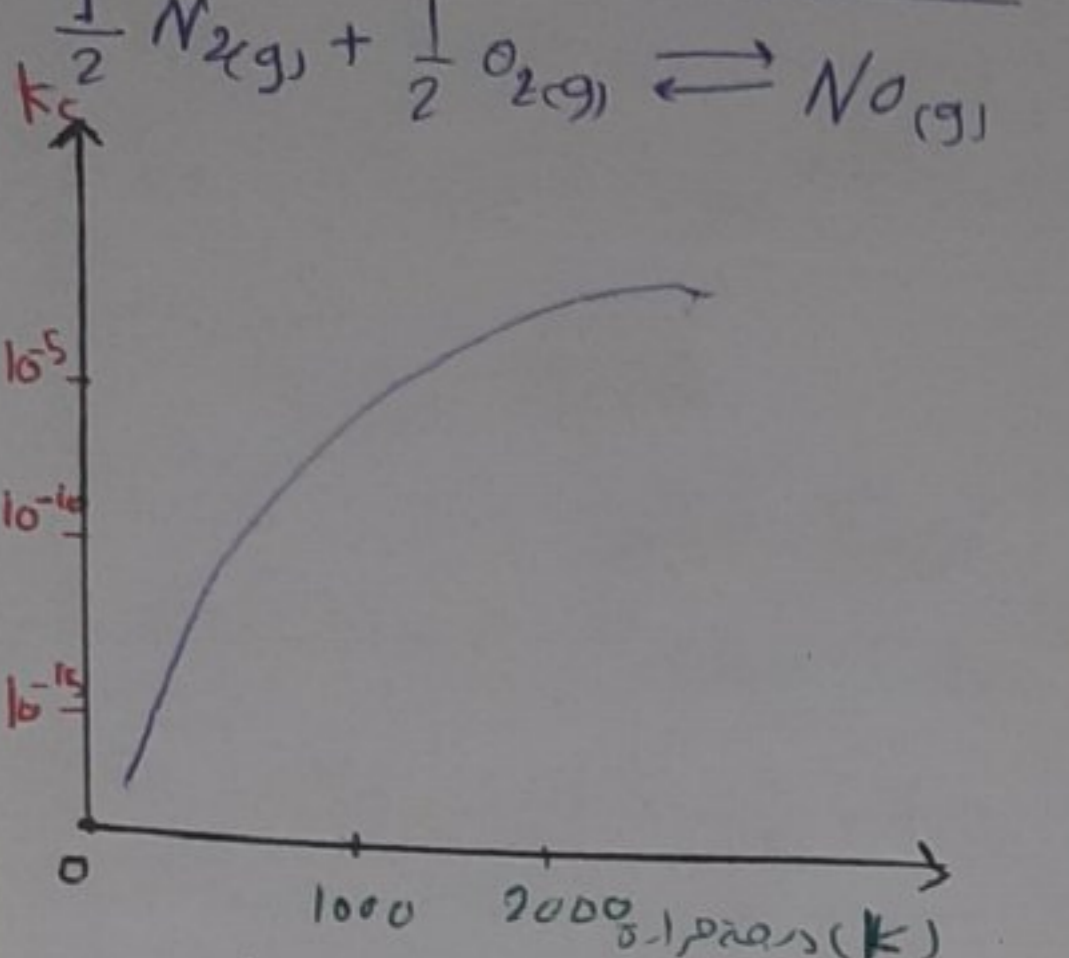 ½ N₂(g) + ½ O₂(g) ⇌ NO(g)
Kc
10⁻⁵
10⁻¹⁰
10⁻¹⁵
0
1000
2000
درجة حرارة (K)